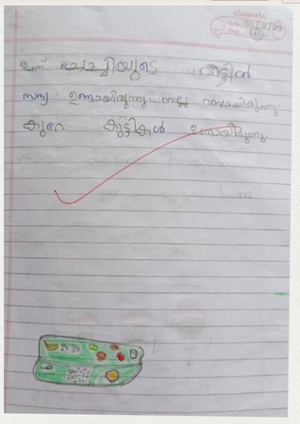 ഇന്ന് ചേച്ചിയുടെ വീട്ടിൽ
സദ്യ ഉണ്ടായിരുന്നു. നല്ല രസായിരുന്നു.
കുറേ കുട്ടികൾ ഉണ്ടായിരുന്നു.